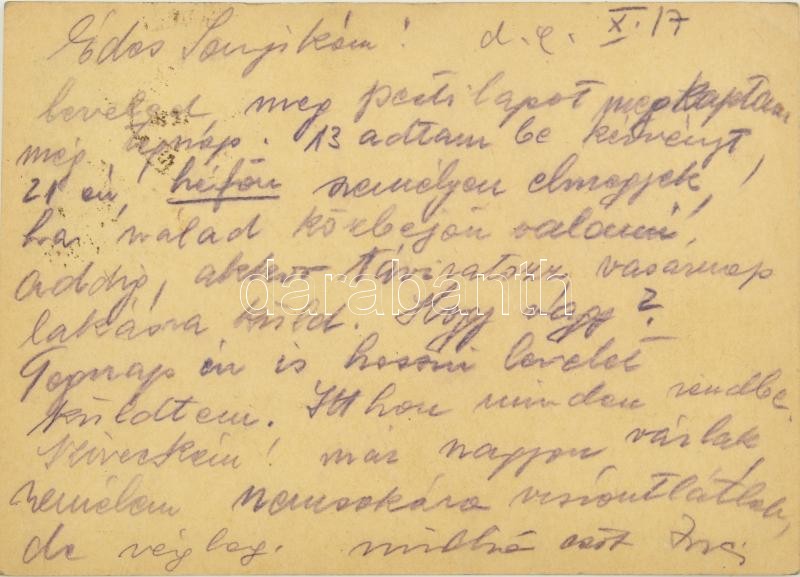 Édes Sanyikám! d.e. X./17
leveled, meg pesti lapot megkaptam
még tegnap. 13 adtam be kérvényt,
21 én, hétfőn személyen elmegyek,
ha nálad közbejön valami,
addig, akkor táviratozz vasárnap
lakásra küld. Hogy vagy?
Tegnap én is hosszú levelet
küldtem. Itthon minden rendbe.
Szivecském! már nagyon várlak,
remélem nemsokára viszontlátlak,
de végleg. millió csók
darabanth